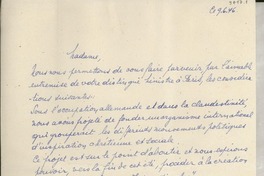 le 9.6.46
Madame,
Nous nous permettons de vous faire parvenir par l'aimable
entremise de votre distingué Ministre à Paris, les considéra-
tions suivantes.
Sous l'occupation allemande et dans la clandestinité,
nous avons projeté de fonder un organisme international
qui grouperait les différents mouvements politiques
d'inspiration chrétienne et sociale.
Ce projet est sur le point d'aboutir et nous espérons
pouvoir, vers la fin de cet été, procéder à la création